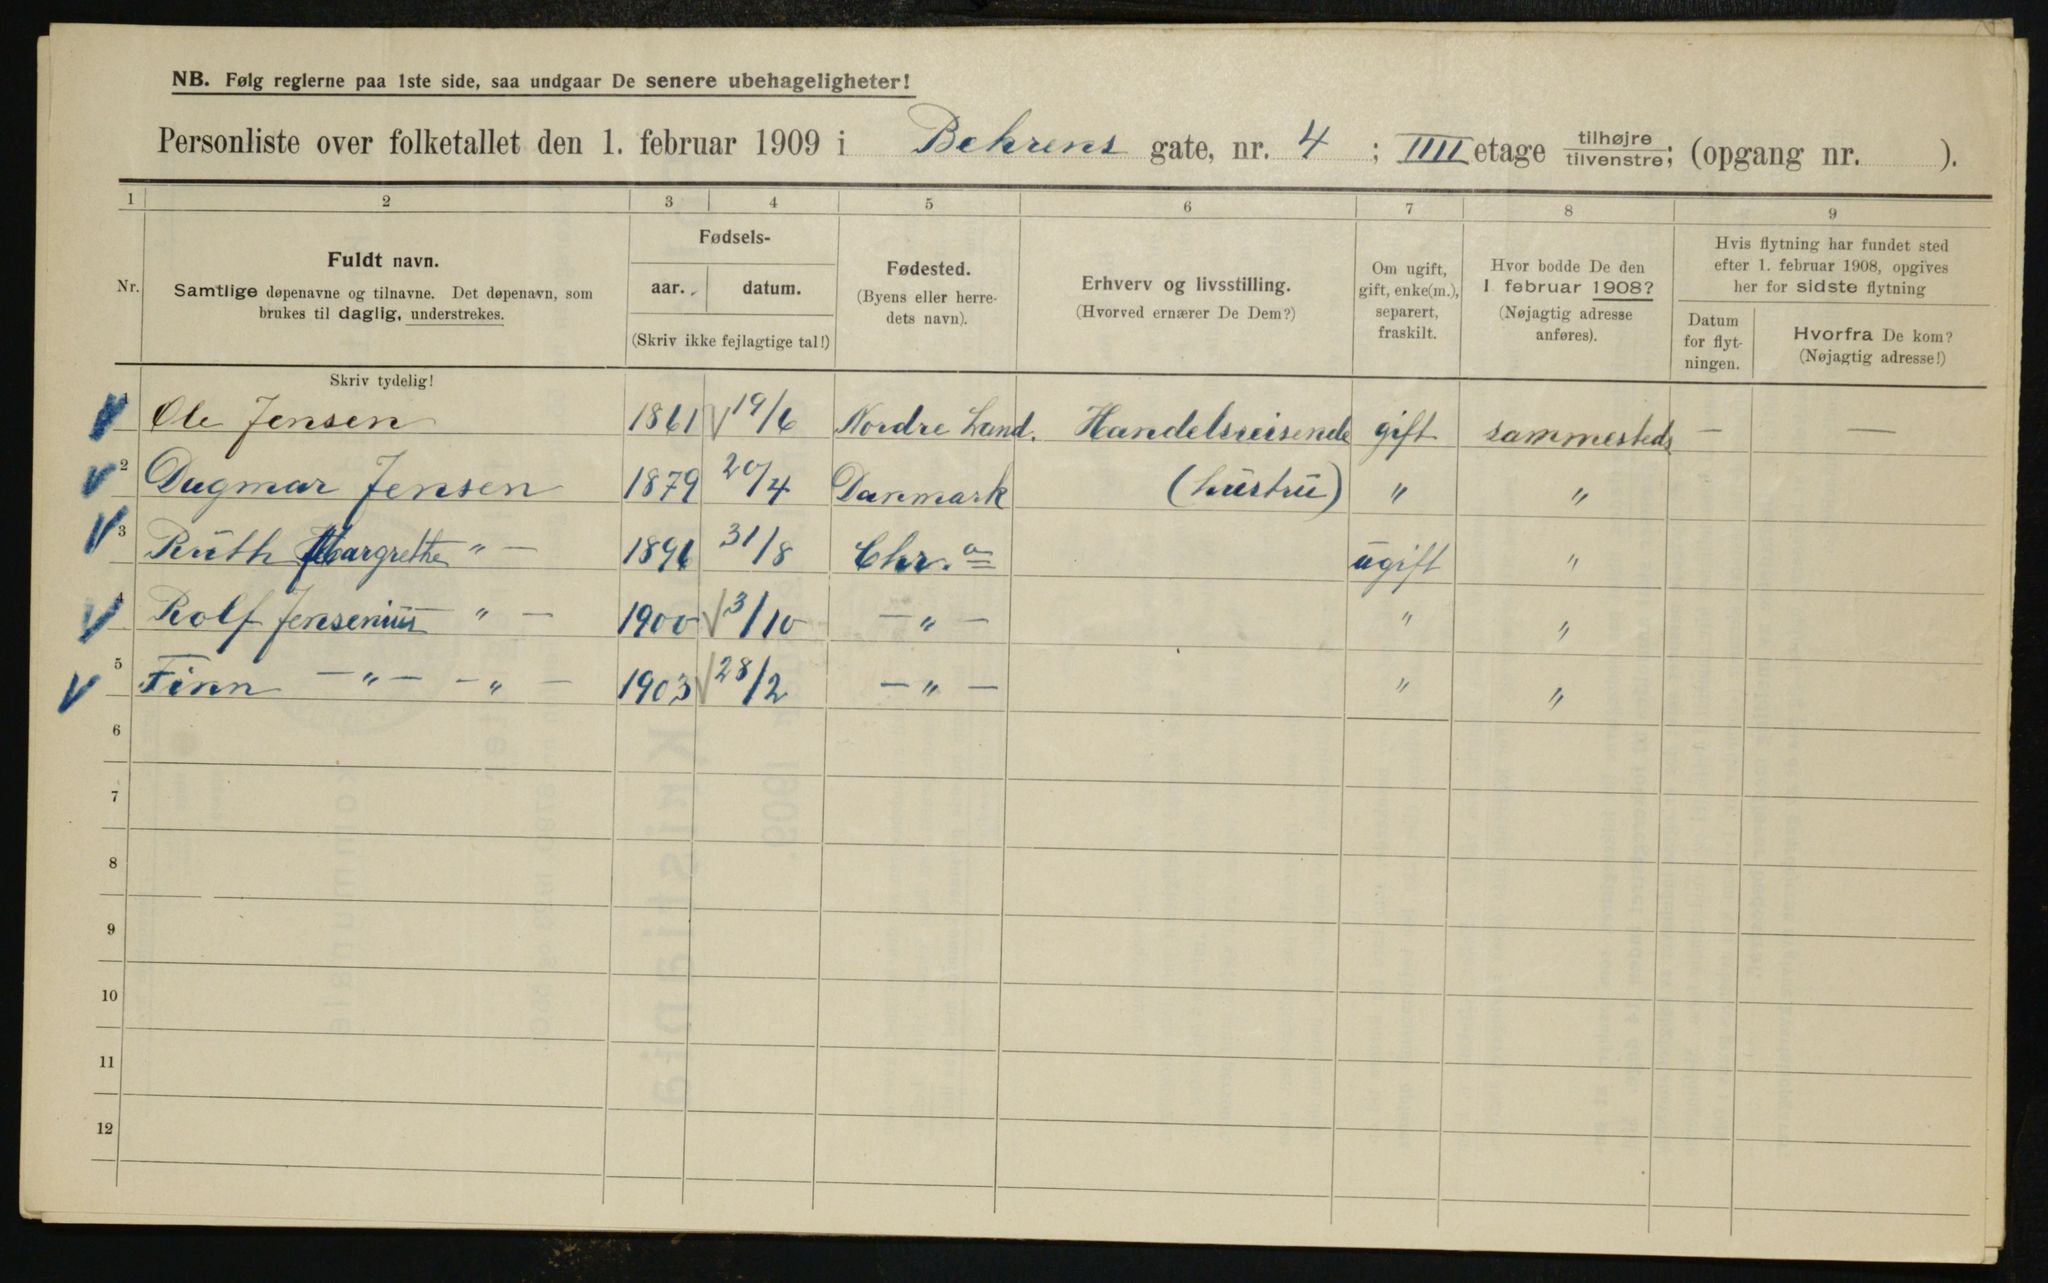 NB. Følg reglerne paa 1ste side, saa undgaar De senere ubehageligheter!
Personliste over folketallet den 1. februar 1909 i Behrens gate, nr. 4; IIII etage tilhøjre / tilvenstre; (opgang nr. ).
1 2 3 4 5 6 7 8 9
Nr.
Fuldt navn.
Samtlige døpenavne og tilnavne. Det døpenavn, som
brukes til daglig, understrekes.
Skriv tydelig!
Fødsels-
aar. datum.
(Skriv ikke fejlagtige tal!)
Fødested.
(Byens eller herre-
dets navn).
Erhverv og livsstilling.
(Hvorved ernærer De Dem?)
Om ugift,
gift, enke(m.),
separert,
fraskilt.
Hvor bodde De den
1. februar 1908?
(Nøjagtig adresse
anføres).
Hvis flytning har fundet sted
efter 1. februar 1908, opgives
her for sidste flytning
Datum
for flyt-
ningen.
Hvorfra De kom?
(Nøjagtig adresse!)
1 Ole Jensen 1861 19/6 Nordre Land. Handelsreisende gift sammesteds — —
2 Dagmar Jensen 1879 20/4 Danmark (hustru) " "
3 Ruth Margrethe " — 1896 31/8 Chr.a ugift "
4 Rolf Jensenius " — 1900 3/10 — " — " "
5 Finn — " — — " — 1903 28/2 — " — " "
6
7
8
9
10
11
12